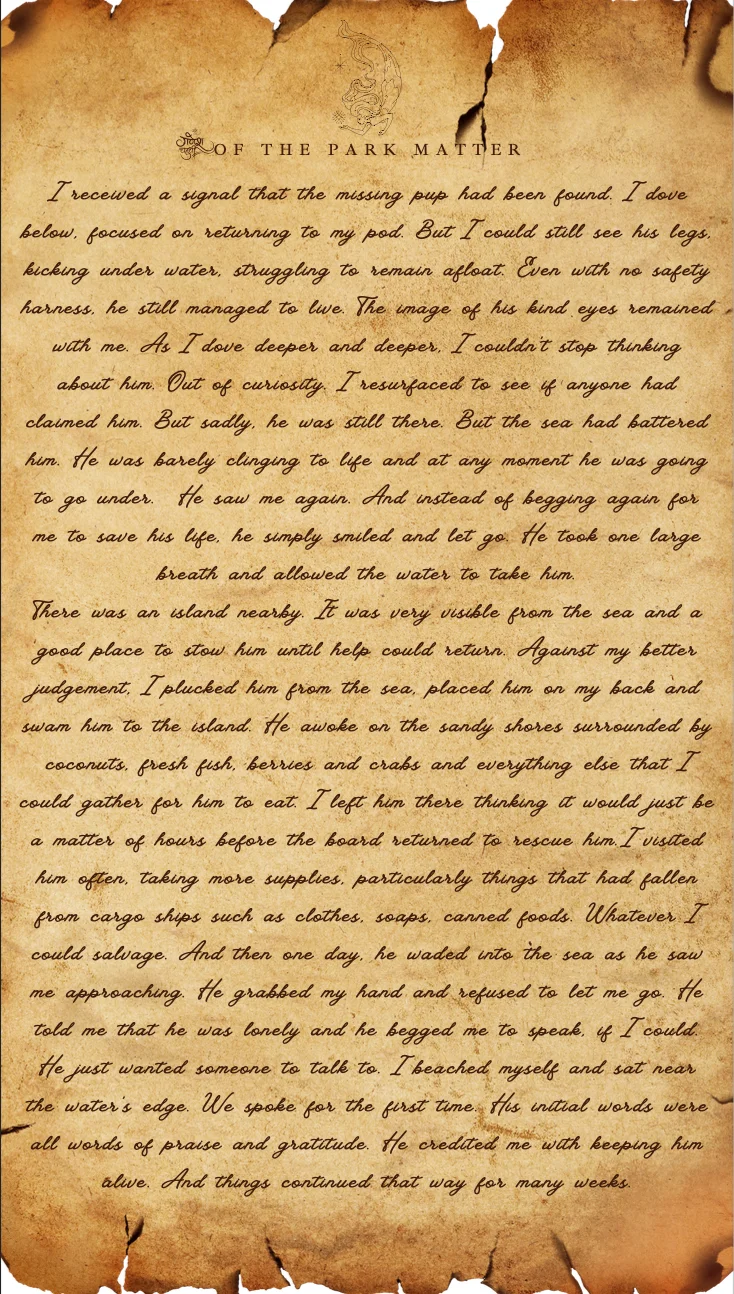 OF THE PARK MATTER
I received a signal that the missing pup had been found. I dove
below, focused on returning to my pod. But I could still see his legs,
kicking under water, struggling to remain afloat. Even with no safety
harness, he still managed to live. The image of his kind eyes remained
with me. As I dove deeper and deeper, I couldn't stop thinking
about him. Out of curiosity, I resurfaced to see if anyone had
claimed him. But sadly, he was still there. But the sea had battered
him. He was barely clinging to life and at any moment he was going
to go under. He saw me again. And instead of begging again for
me to save his life, he simply smiled and let go. He took one large
breath and allowed the water to take him.
There was an island nearby. It was very visible from the sea and a
good place to stow him until help could return. Against my better
judgement, I plucked him from the sea, placed him on my back and
swam him to the island. He awoke on the sandy shores surrounded by
coconuts, fresh fish, berries and crabs and everything else that I
could gather for him to eat. I left him there thinking it would just be
a matter of hours before the board returned to rescue him.I visited
him often, taking more supplies, particularly things that had fallen
from cargo ships such as clothes, soaps, canned foods. Whatever I
could salvage. And then one day, he waded into the sea as he saw
me approaching. He grabbed my hand and refused to let me go. He
told me that he was lonely and he begged me to speak, if I could.
He just wanted someone to talk to. I beached myself and sat near
the water's edge. We spoke for the first time. His initial words were
all words of praise and gratitude. He credited me with keeping him
alive. And things continued that way for many weeks.